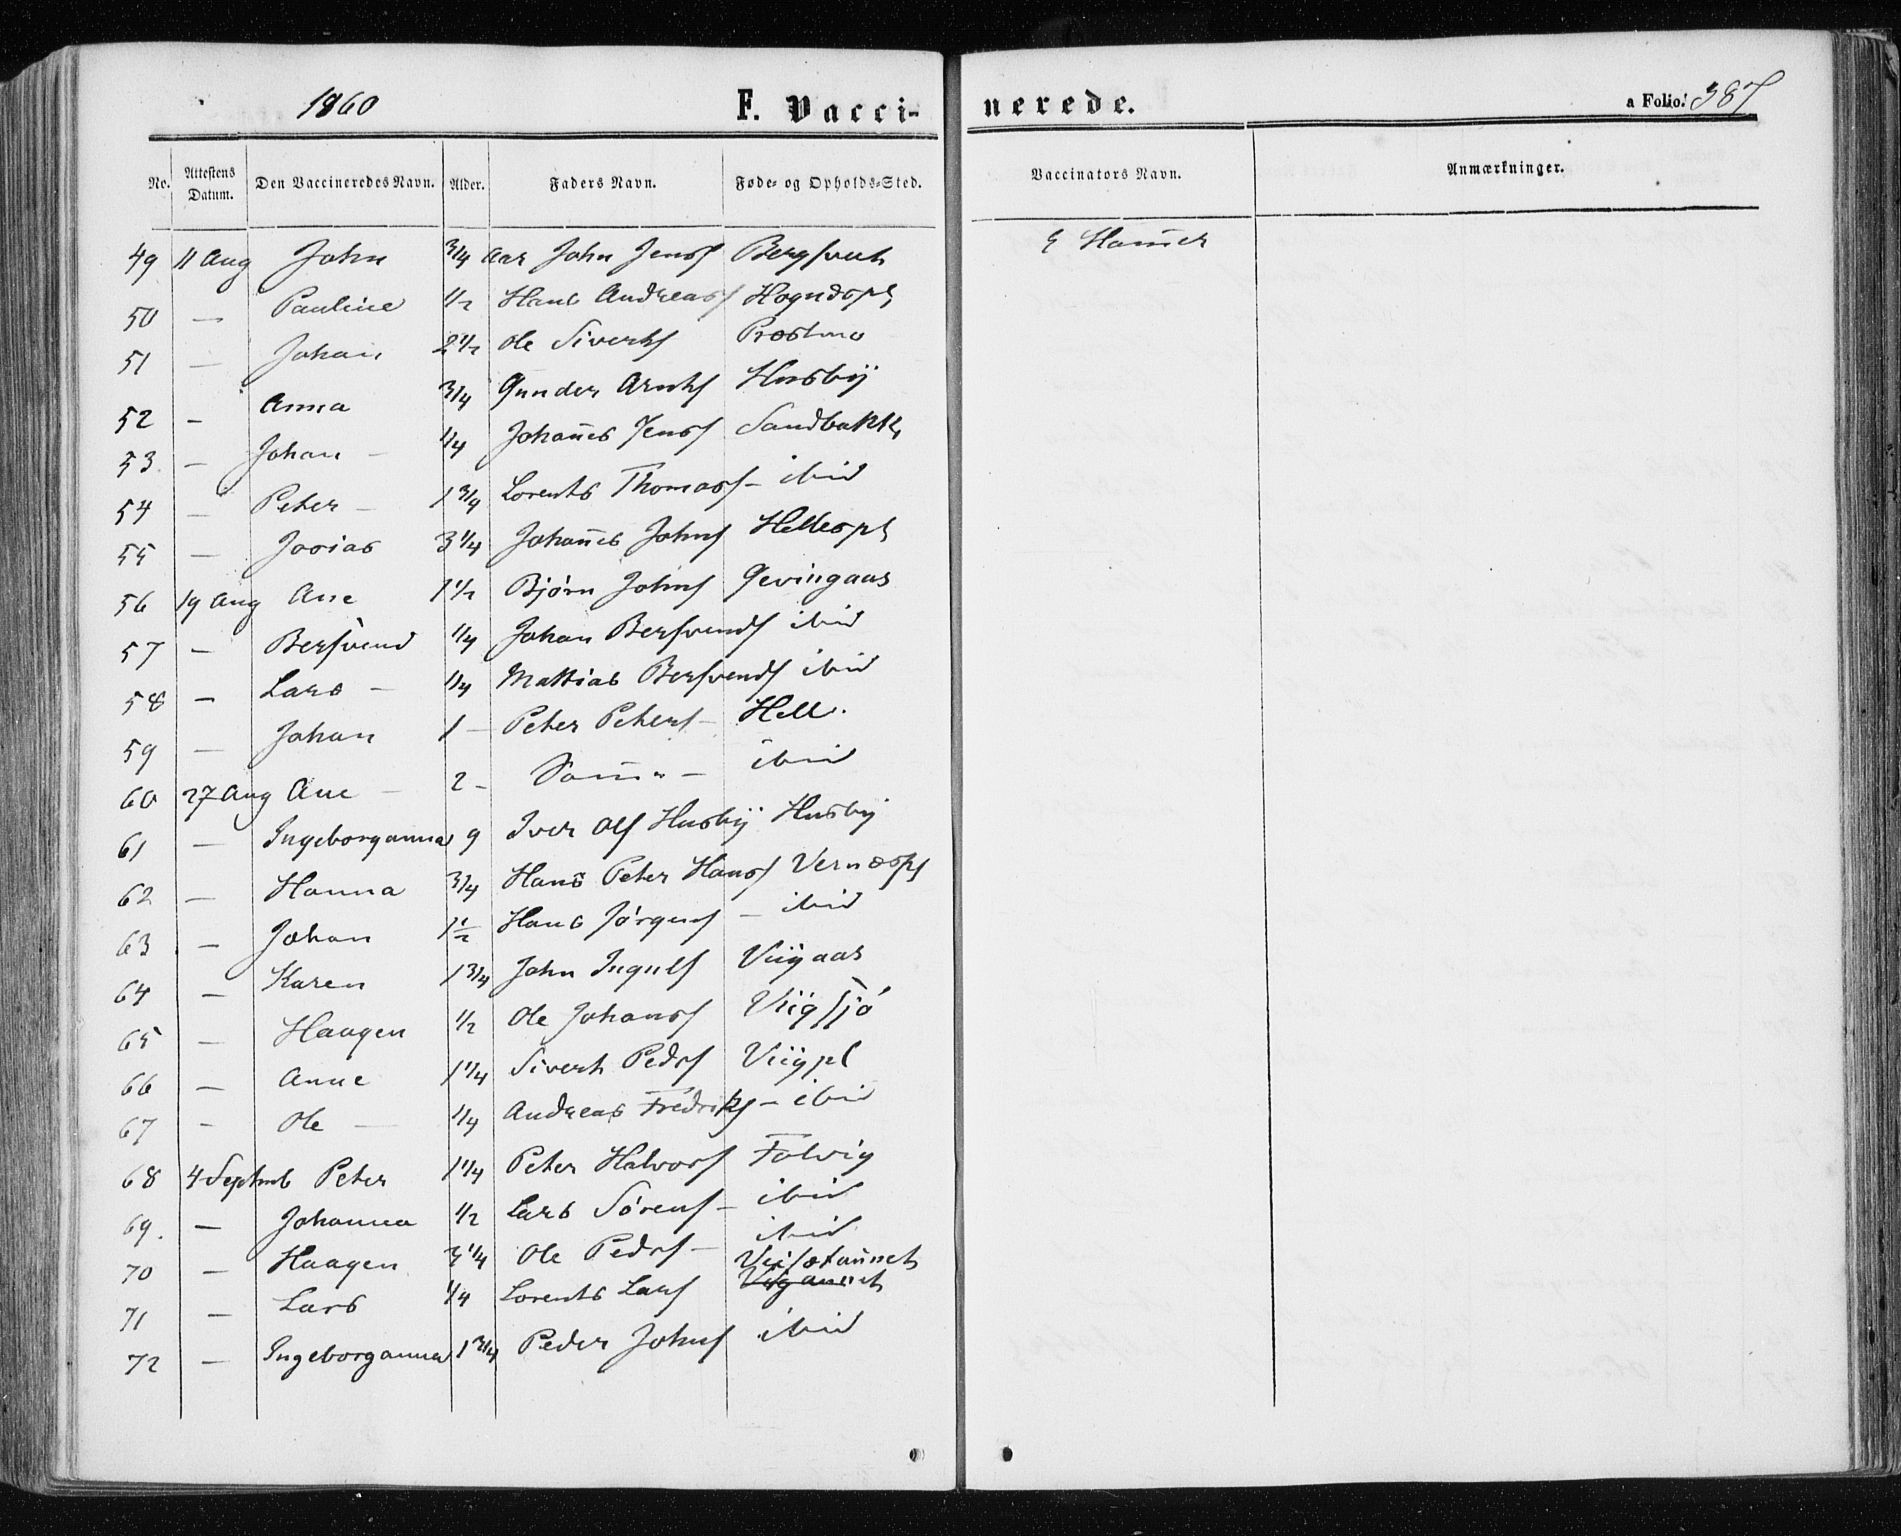 1860 F. Vacci- nerede. a Folio! 387
No. Attestens Datum. Den Vaccineredes Navn. Alder. Faders Navn. Føde- og Opholds-Sted. Vaccinators Navn. Anmærkninger.
49 11 Aug John 3/4 Aar John Jensf E Ham̄er
50 — Pauline 1/2 Hans Andreasf Hognespl
51 — Johan 2 1/2 Ole Sivertsf Præstmo
52 - Anna 3/4 Gunder Arntsf Husbÿ
53. — Johan - 1/4 Johan̄es Jensf Sandbakk
54 — Peter - 1 3/4 Lorents Thomasf - ibid
55 — Josias 3 1/4 Johan̄es Johnsf Hellespl
56 19 Aug Ane 1 1/2 Bjørn Johnsf Gevingaas
57 — Bersvend 1/4 Johan Bersvendsf ibid
58 — Lars - 1/4 Mattias Bersvendsf ibid
59 — Johan 1 - Peter Petersf - Hell.
60 27 Aug Ane - 2 - Sam̄e - ibid
61 — Ingeborganna 9 Iver Olsf Husbÿ Husbÿ
62 — Hanna 3/4 Hans Peter Hansf Vernæspl
63 . — Johan 1 1/2 Hans Jørgensf - ibid
64 — Karen 1 3/4 John Ingulsf Viigaas
65 — Haagen 1/2 Ole Johansf
66 — Anne 1 1/4 Sivert Pedsf Viigpl
67 - Ole — 1/4 Andreas Fredriksf - ibid
68 4 Septemb Peter 1 1/4 Peter Halvorsf Folvig
69. — Johanna 1/2 Lars Sørensf - ibid
70 — Haagen 3 1/4 Ole Pedsf - ibid
71 — Lars 1/4 Lorents Larsf
72 — Ingeborganna 1 3/4 Peder Johnsf ibid